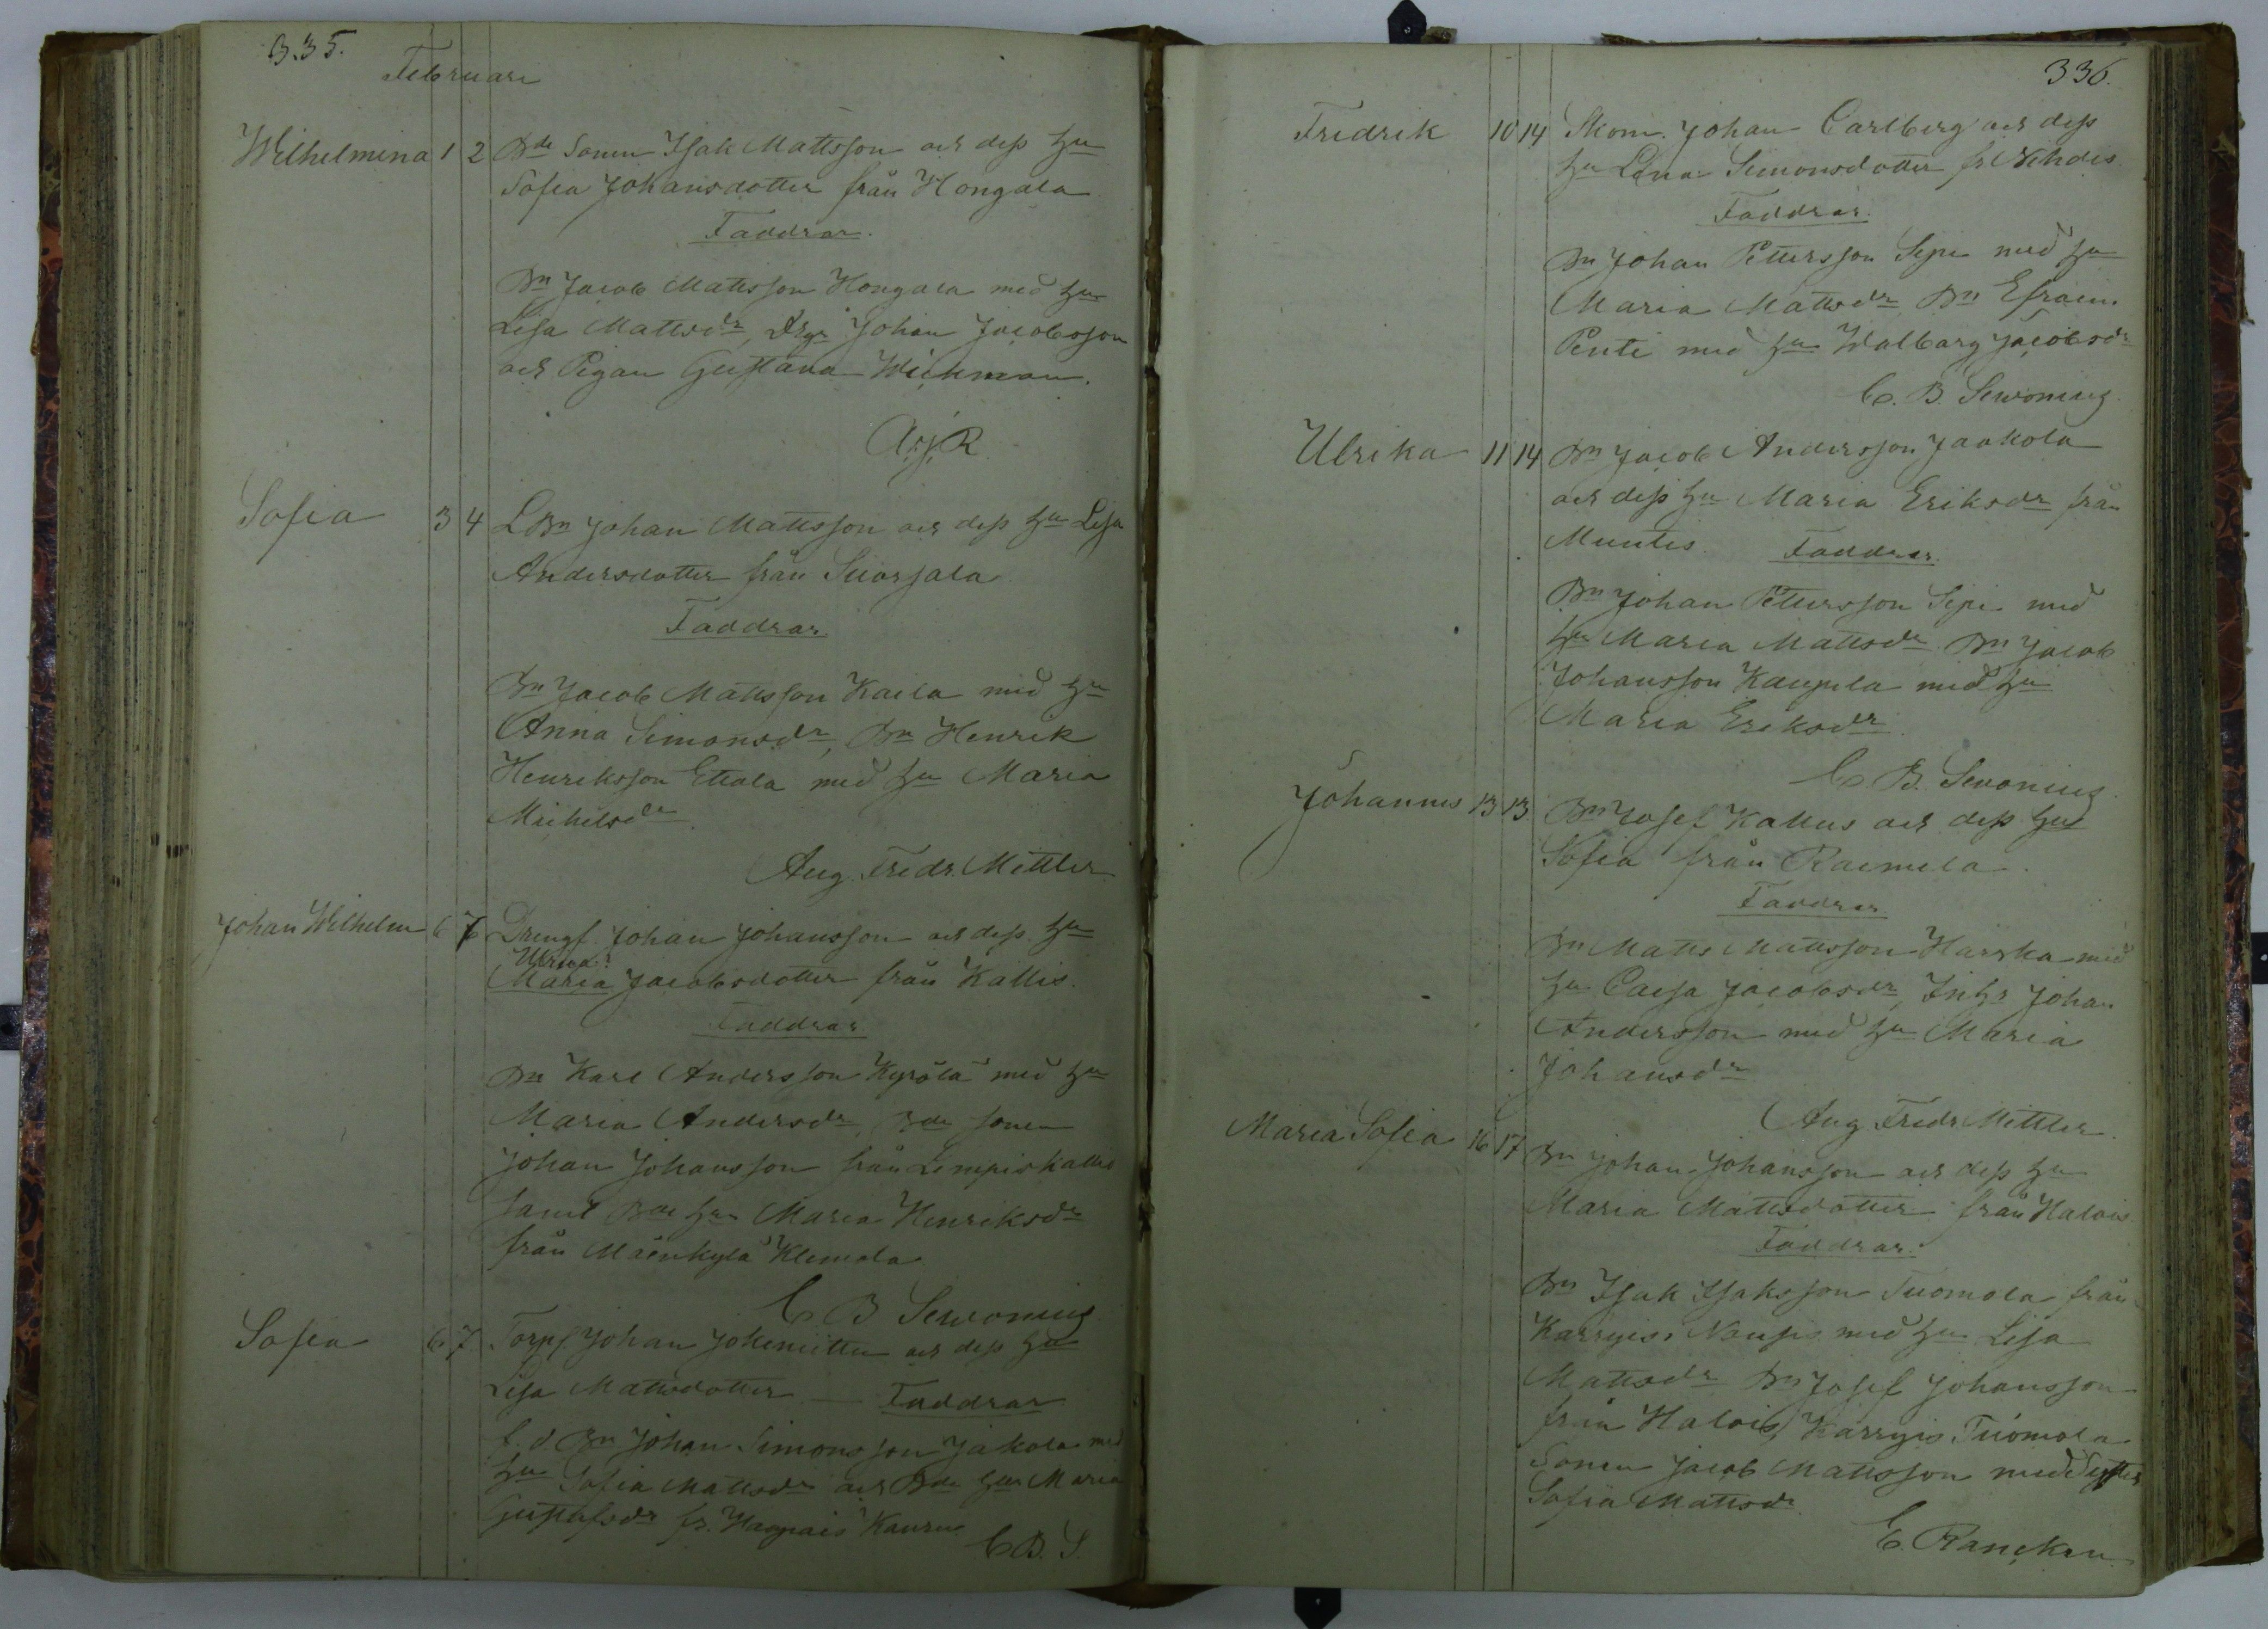 335.
Februari
Wilhelmina 1 2 Bde Sonen Isak Mattsson och dess hu
Sofia Johansdotter från Hongala
Faddrar.
Bn Jacob Mattsson Hongala med hu
Lisa Mattsdr, Drgn Johan Jacobsson
och Pigan Gustava Wickman.
A.j.R.
Sofia 3 4 LBn Johan Mattsson och dess hu Lisa
Andersdotter från Suorsala
Faddrar.
Bn Jacob Mattsson Kaila med hu
Anna Simonsdr, Bn Henrik
Henriksson Ettala med hu Maria
Michelsdr
Aug. Fredr. Mittler
Johan Wilhelm 6 7 Drengf. Johan Johansson och dess hu
Ulrica?
Maria Jacobsdotter från Kallis.
Faddrar
Bn Karl Andersson Kyrölä med hu
Maria Andersdr, Bde sonen
Johan Johansson från Lempis Kallis
samt Bde hu Maria Henriksdr
från Mäenkylä Klemola
C. B. Sewonius
Sofia 6 7 Torpf. Johan Jokiniittu och dess hu
Lisa Mattsdotter — Faddrar
f. d. Bn Johan Simonsson Jakola med
hu Sofia Mattsdr och Bde hu Maria
Gustafsdr fr. Haapais Kauru
C B. S.
336.
Fredrik 10 14 Skom. Johan Carlberg och dess
hu Lena Simonsdotter fr Nihdis
Faddrar.
Bn Johan Pettersson Sipi med hu
Maria Mattsdr Bn Efraim
Penti med hu Walborg Jacobsdr
C. B. Sewonius.
Ulrika 11 14 Bn Jacob Andersson Jaakola
och dess hu Maria Eriksdr från
Muntis. Faddrar.
Bn Johan Pettersson Sipi med
hu Maria Mattsdr Bn Jacob
Johansson Kaupila med hu
Maria Eriksdr
C. B. Sewonius.
Johannes 13 13 Bn Josef Kallus och dess hu
Sofia från Raimela.
Faddrar
Bn Matts Mattsson Harska med
hu Caisa Jacobsdr, Inhs Johan
Andersson med hu Maria
Johansdr
Aug. Fredr. Mittler.
Maria Sofia 16 17 Bn Johan Johansson och dess hu
Maria Mattsdotter från Halois.
Faddrar.
Bn Isak Isaksson Tuomola från
Karryis, Naupis med hu Lisa
Mattsdr Bn Josef Johansson
från Halois, Karryis Tuomola
Sonen Jacob Mattsson med Syster
Sofia Mattsdr
E. Rancken.